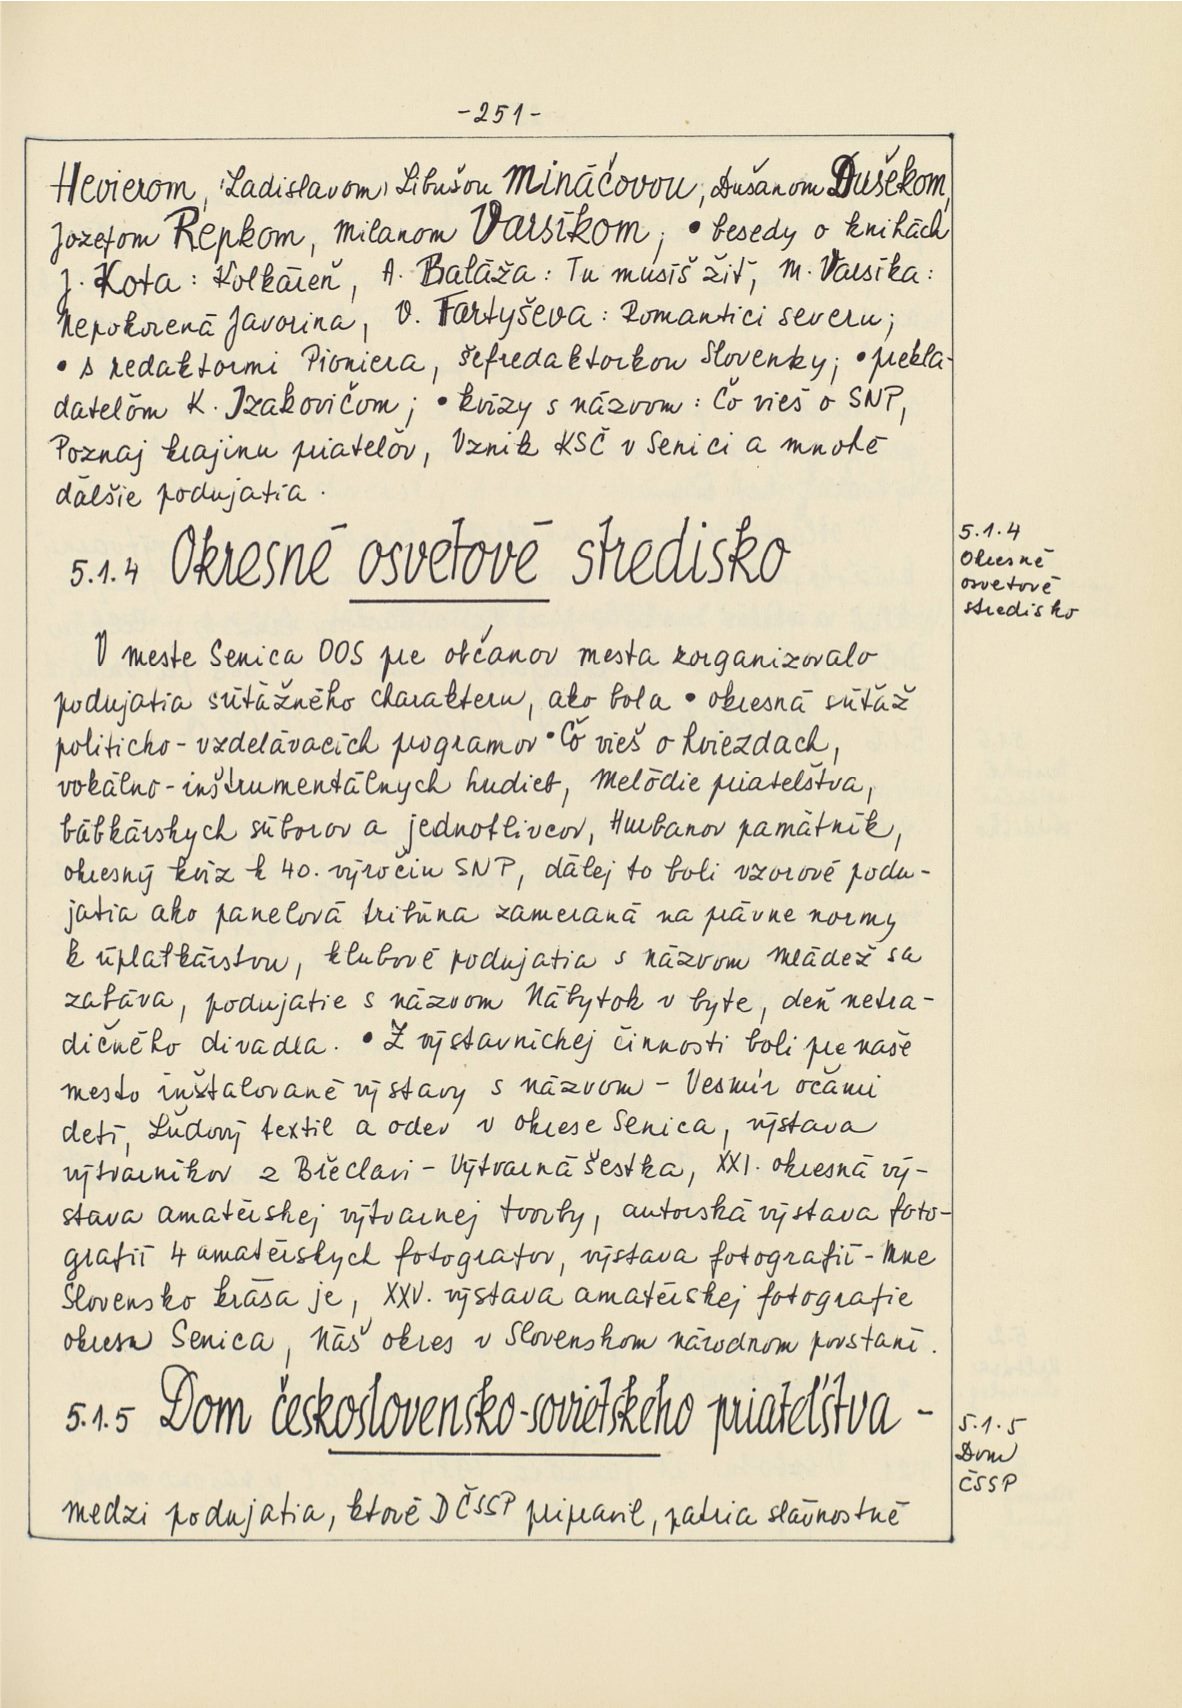 -251-
Hevierom, Ladislavom, Libušou Mináčovou, Dušanom Dušekom,
Jozefom Repkom, Milanom Varsíkom; • besedy o knihách
J. Kota: Kolkáreň, A. Baláža: Tu musíš žiť, M. Varsíka:
Nepokorená Javorina, V. Fartyševa: Romantici severu;
• s redaktormi Pioniera, šéfredaktorkou Slovenky; • prekla-
dateľom K. Izakovičom; • kvízy s názvom: Čo vieš o SNP,
Poznaj krajinu priateľov, Vznik KSČ v Senici a mnohé
ďalšie podujatia.
5.1.4 Okresné osvetové stredisko
5.1.4
Okresné
osvetové
stredisko
V meste Senica OOS pre občanov mesta zorganizovalo
podujatia súťažného charakteru, ako bola • okresná súťaž
politicko-vzdelávacích programov • Čo vieš o hviezdach,
vokálno-inštrumentálnych hudieb, Melódie priateľstva,
bábkárskych súborov a jednotlivcov, Hurbanov pamätník,
okresný kvíz k 40. výročiu SNP, ďalej to boli vzorové podu-
jatia ako panelová tribúna zameraná na právne normy
k úplatkárstvu, klubové podujatia s názvom Mládež sa
zabáva, podujatie s názvom Nábytok v byte, deň netra-
dičného divadla. • Z výstavníckej činnosti boli pre naše
mesto inštalované výstavy s názvom - Vesmír očami
detí, Ľudový textil a odev v okrese Senica, výstava
výtvarníkov z Břeclavi - Výtvarná šestka, XXI. okresná vý-
stava amatérskej výtvarnej tvorby, autorská výstava foto-
grafií 4 amatérskych fotografov, výstava fotografií - Mne
Slovensko krása je, XXV. výstava amatérskej fotografie
okresu Senica, Náš okres v Slovenskom národnom povstaní.
5.1.5 Dom československo-sovietskeho priateľstva -
5.1.5
Dom
ČSSP
medzi podujatia, ktoré DČSSP pripravil, patria slávnostné